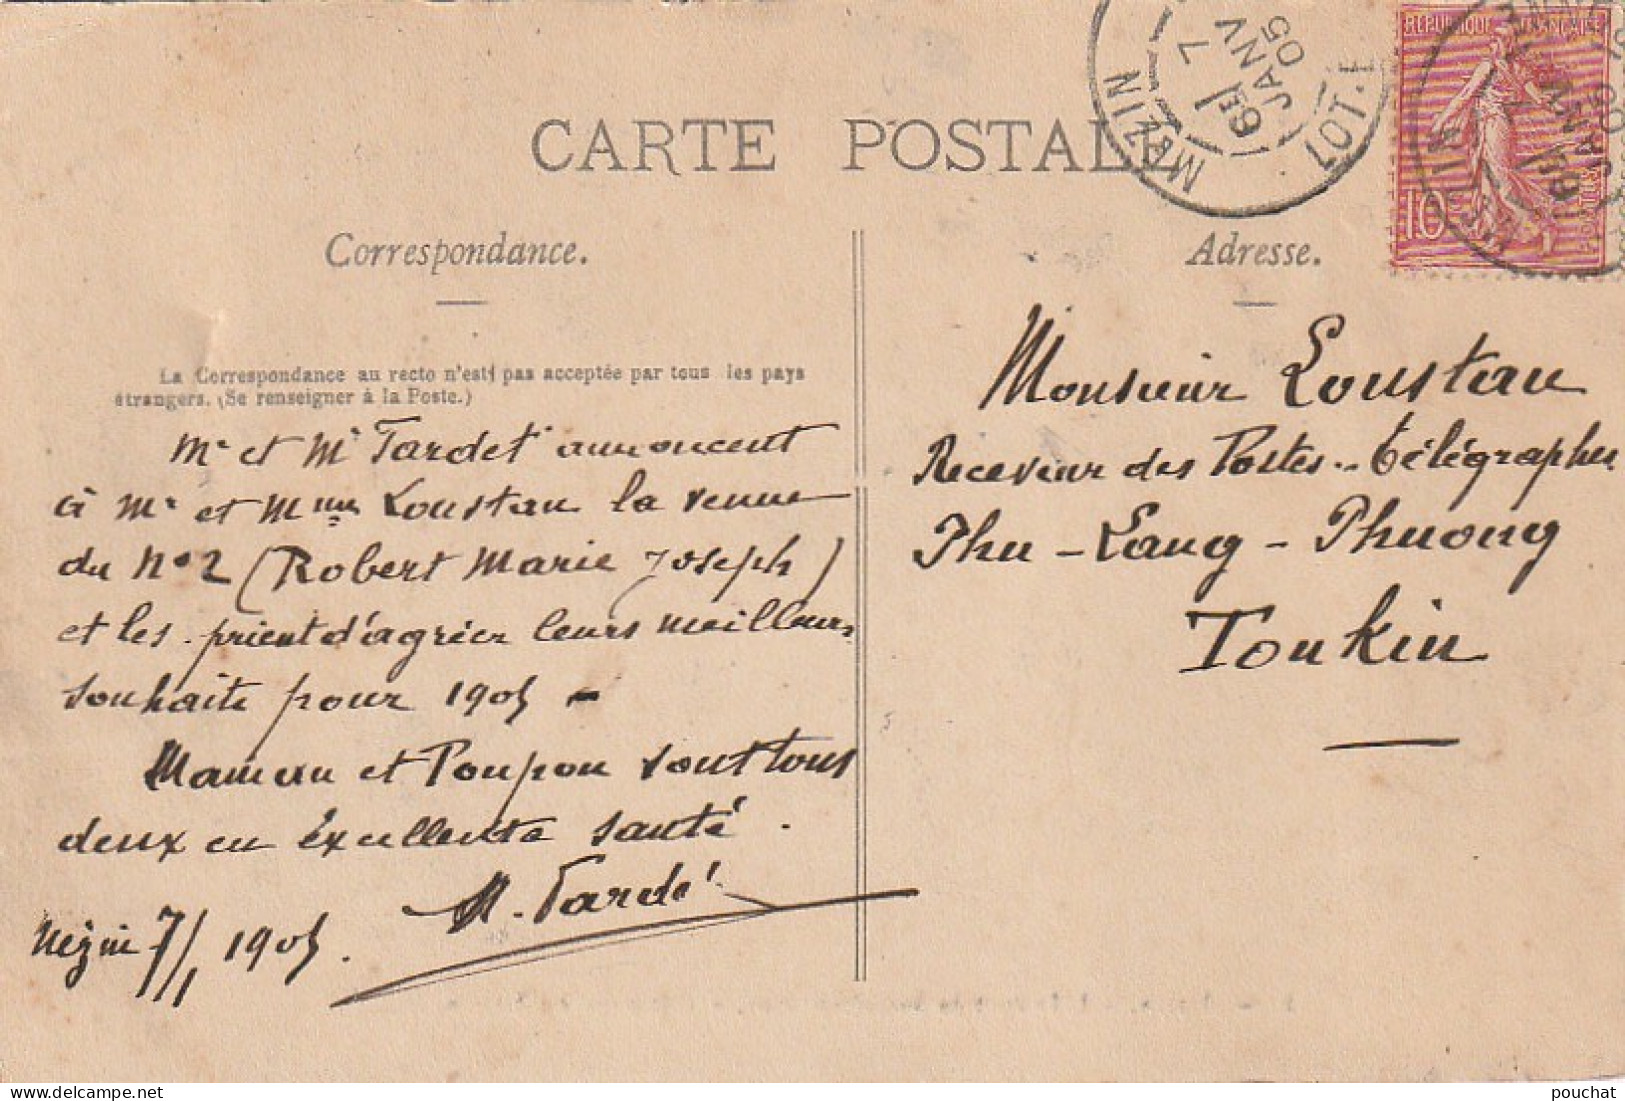 CARTE POSTALE
MÉZIN
6E
7
JANV
05
LOT-
REPUBLIQUE FRANÇAISE
10
POSTES
Correspondance.
Adresse.
La Correspondance au recto n'est pas acceptée par tous les pays
étrangers. (Se renseigner à la Poste.)
Mr et Me Tardet annoncent
à Mr et Mme Loustau la venue
du No 2 (Robert Marie Joseph)
et les prient d'agréer leurs meilleurs
souhaits pour 1905 -
Maman et Poupon sont tous
deux en Excellente santé.
Mézin 7/1 1905.
Monsieur Loustau
Receveur des Postes.. Télégraphes
Phu-Lang-Phuong
Tonkin
pouchat